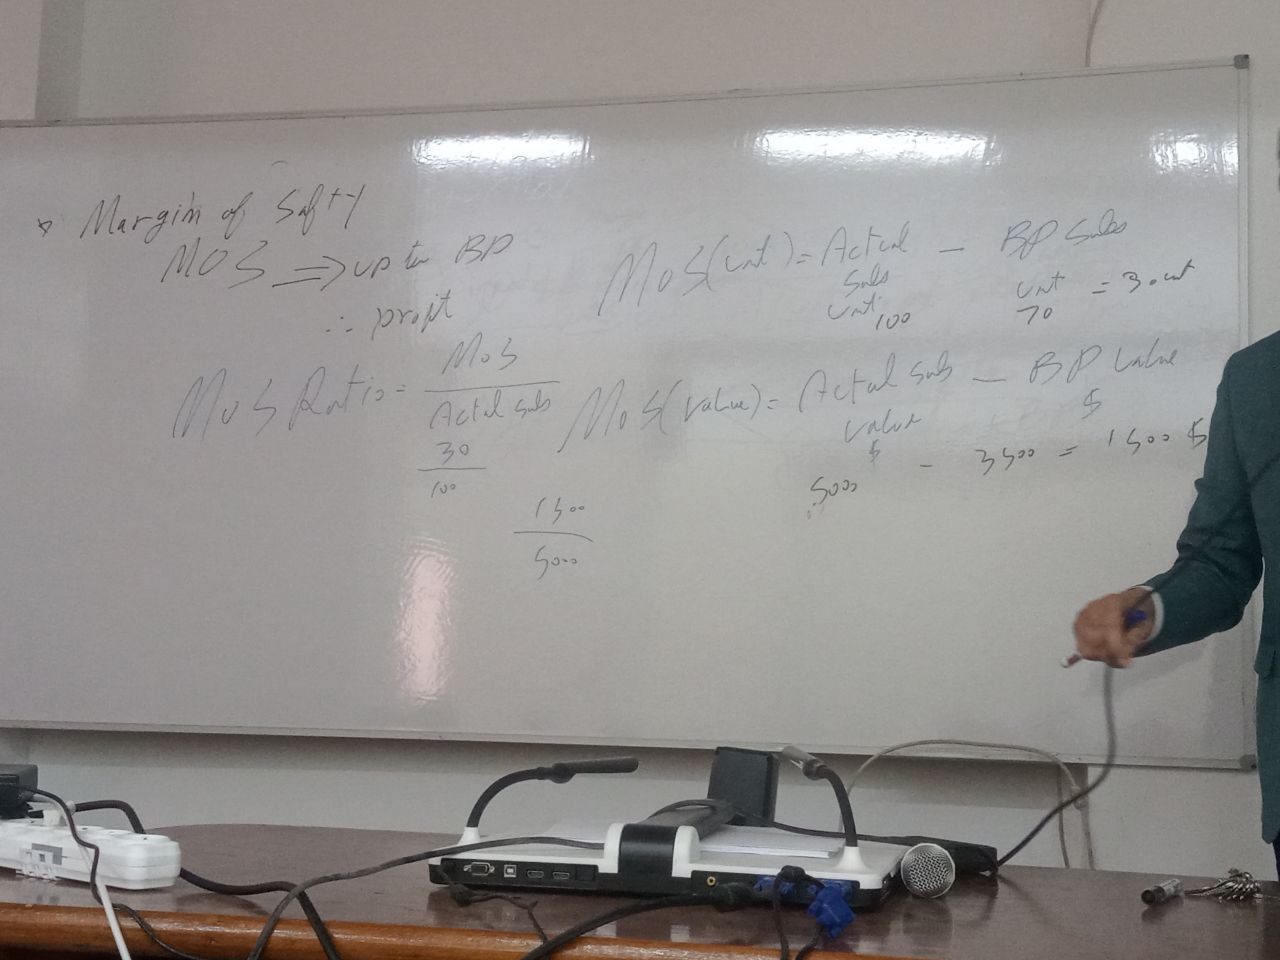 * Margin of Safty
MOS ⇒ up to BP
∴ profit
MOS Ratio = MOS / Actual Sals
30 / 100
1500 / 5000
MOS(unt) = Actual Sals unti - BP Sales unt
100 70 = 30 unt
MOS(value) = Actual Sals value $ - BP value $
5000 - 3500 = 1500 $